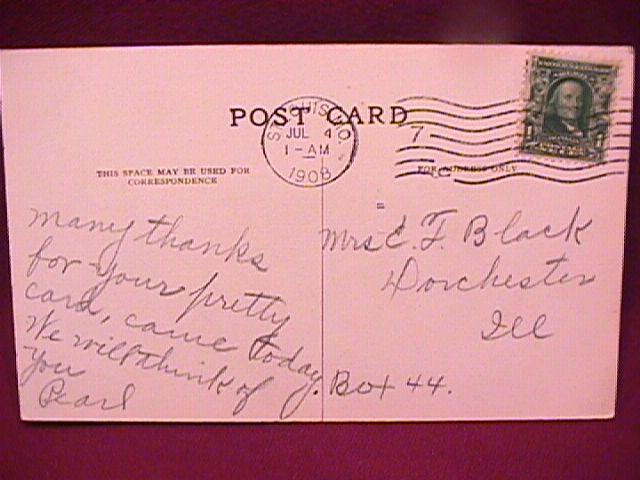 POST CARD
ST. LOUIS, MO.
JUL 4
1-AM
1908
7
THIS SPACE MAY BE USED FOR
CORRESPONDENCE
FOR ADDRESS ONLY
many thanks
for your pretty
card, came today.
We will think of
you
Pearl
Mrs E. F. Black
Dorchester
Ill
Box 44.